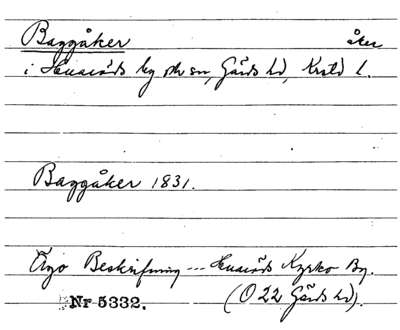 Baggåker åker
i Huaröds by och sn, Gärds hd, Krstd l.
Baggåker 1831.
Ägo Beskrifning --- Huaröds Kyrko By.
Nr 5332. (O 22 Gärds hd).